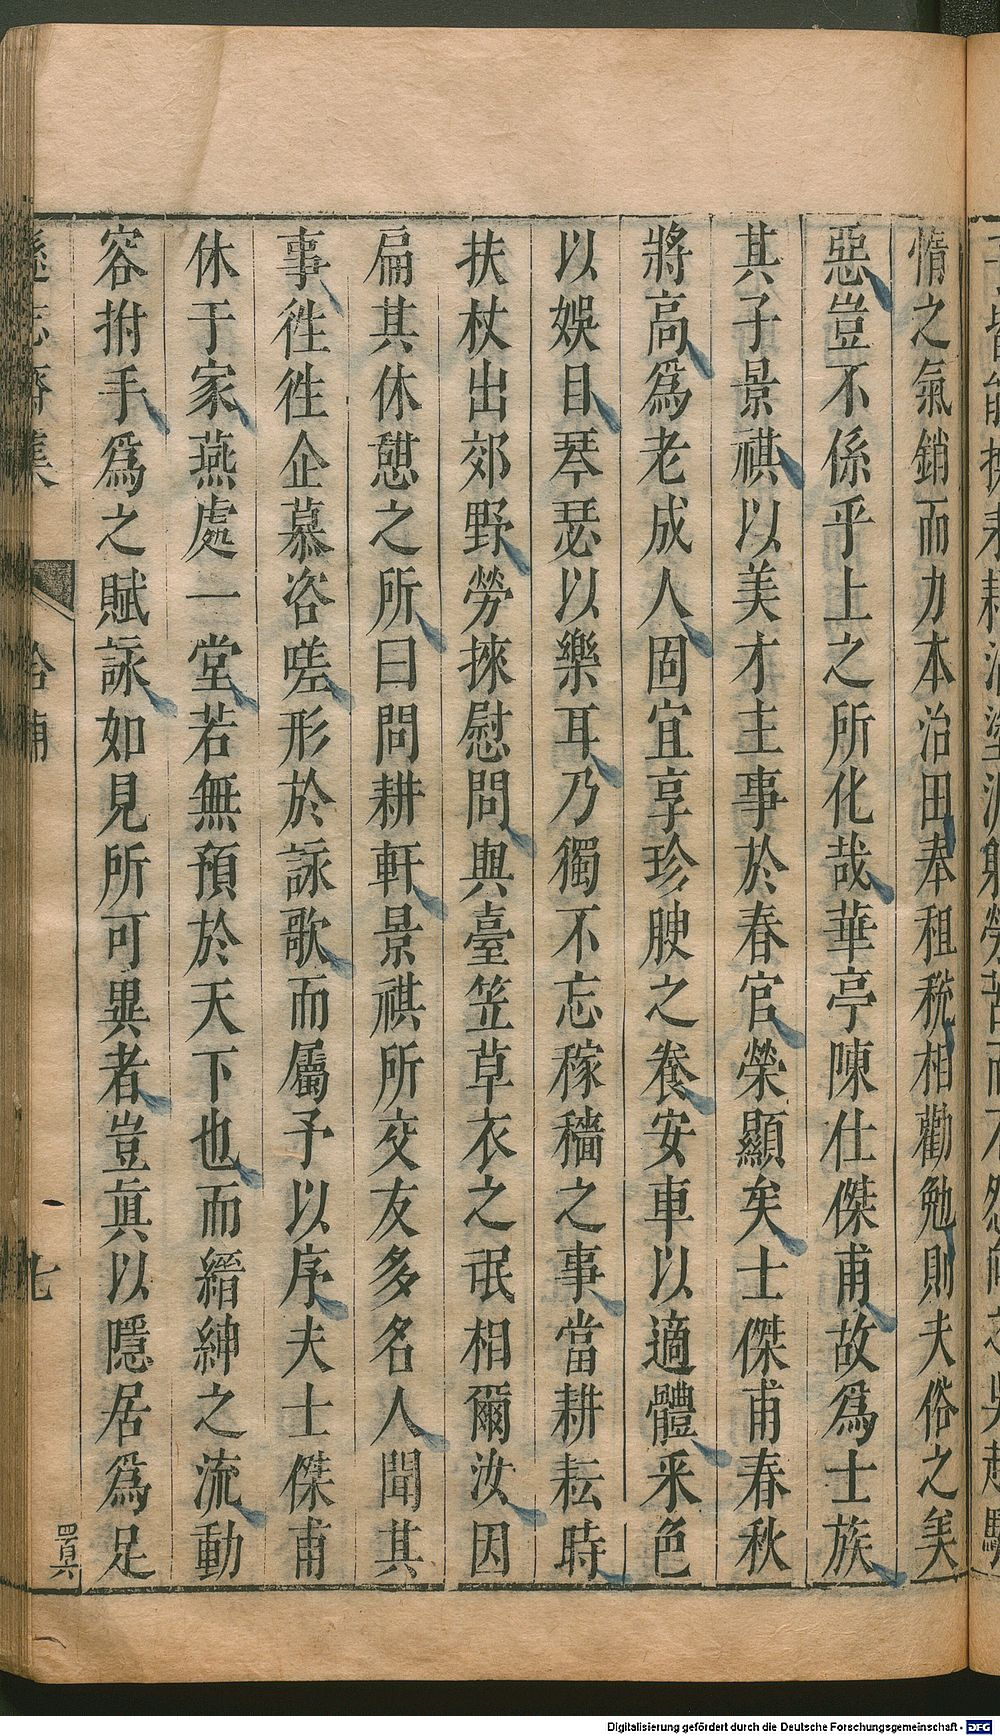 惰之氣銷而力本治田奉租稅相勸勉則夫俗之羙
惡豈不係乎上之所化哉華亭陳仕傑甫故爲士族
其子景祺以美才主事於春官榮顯矣士傑甫春秋
將高爲老成人固宜享珍腴之養安車以適體采色
以娛目琴瑟以樂耳乃獨不忘稼穡之事當耕耘時
扶杖出郊野勞徠慰問與臺笠草衣之氓相爾汝因
扁其休憇之所曰問耕軒景祺所交友多名人聞其
事徃徃企慕咨嗟形於詠歌而屬予以序夫士傑甫
休于家燕處一堂若無預於天下也而縉紳之流動
容拊手爲之賦詠如見所可異者豈眞以隱居爲足
遜志齋集
七
Digitalisierung gefördert durch die Deutsche Forschungsgemeinschaft - DFG